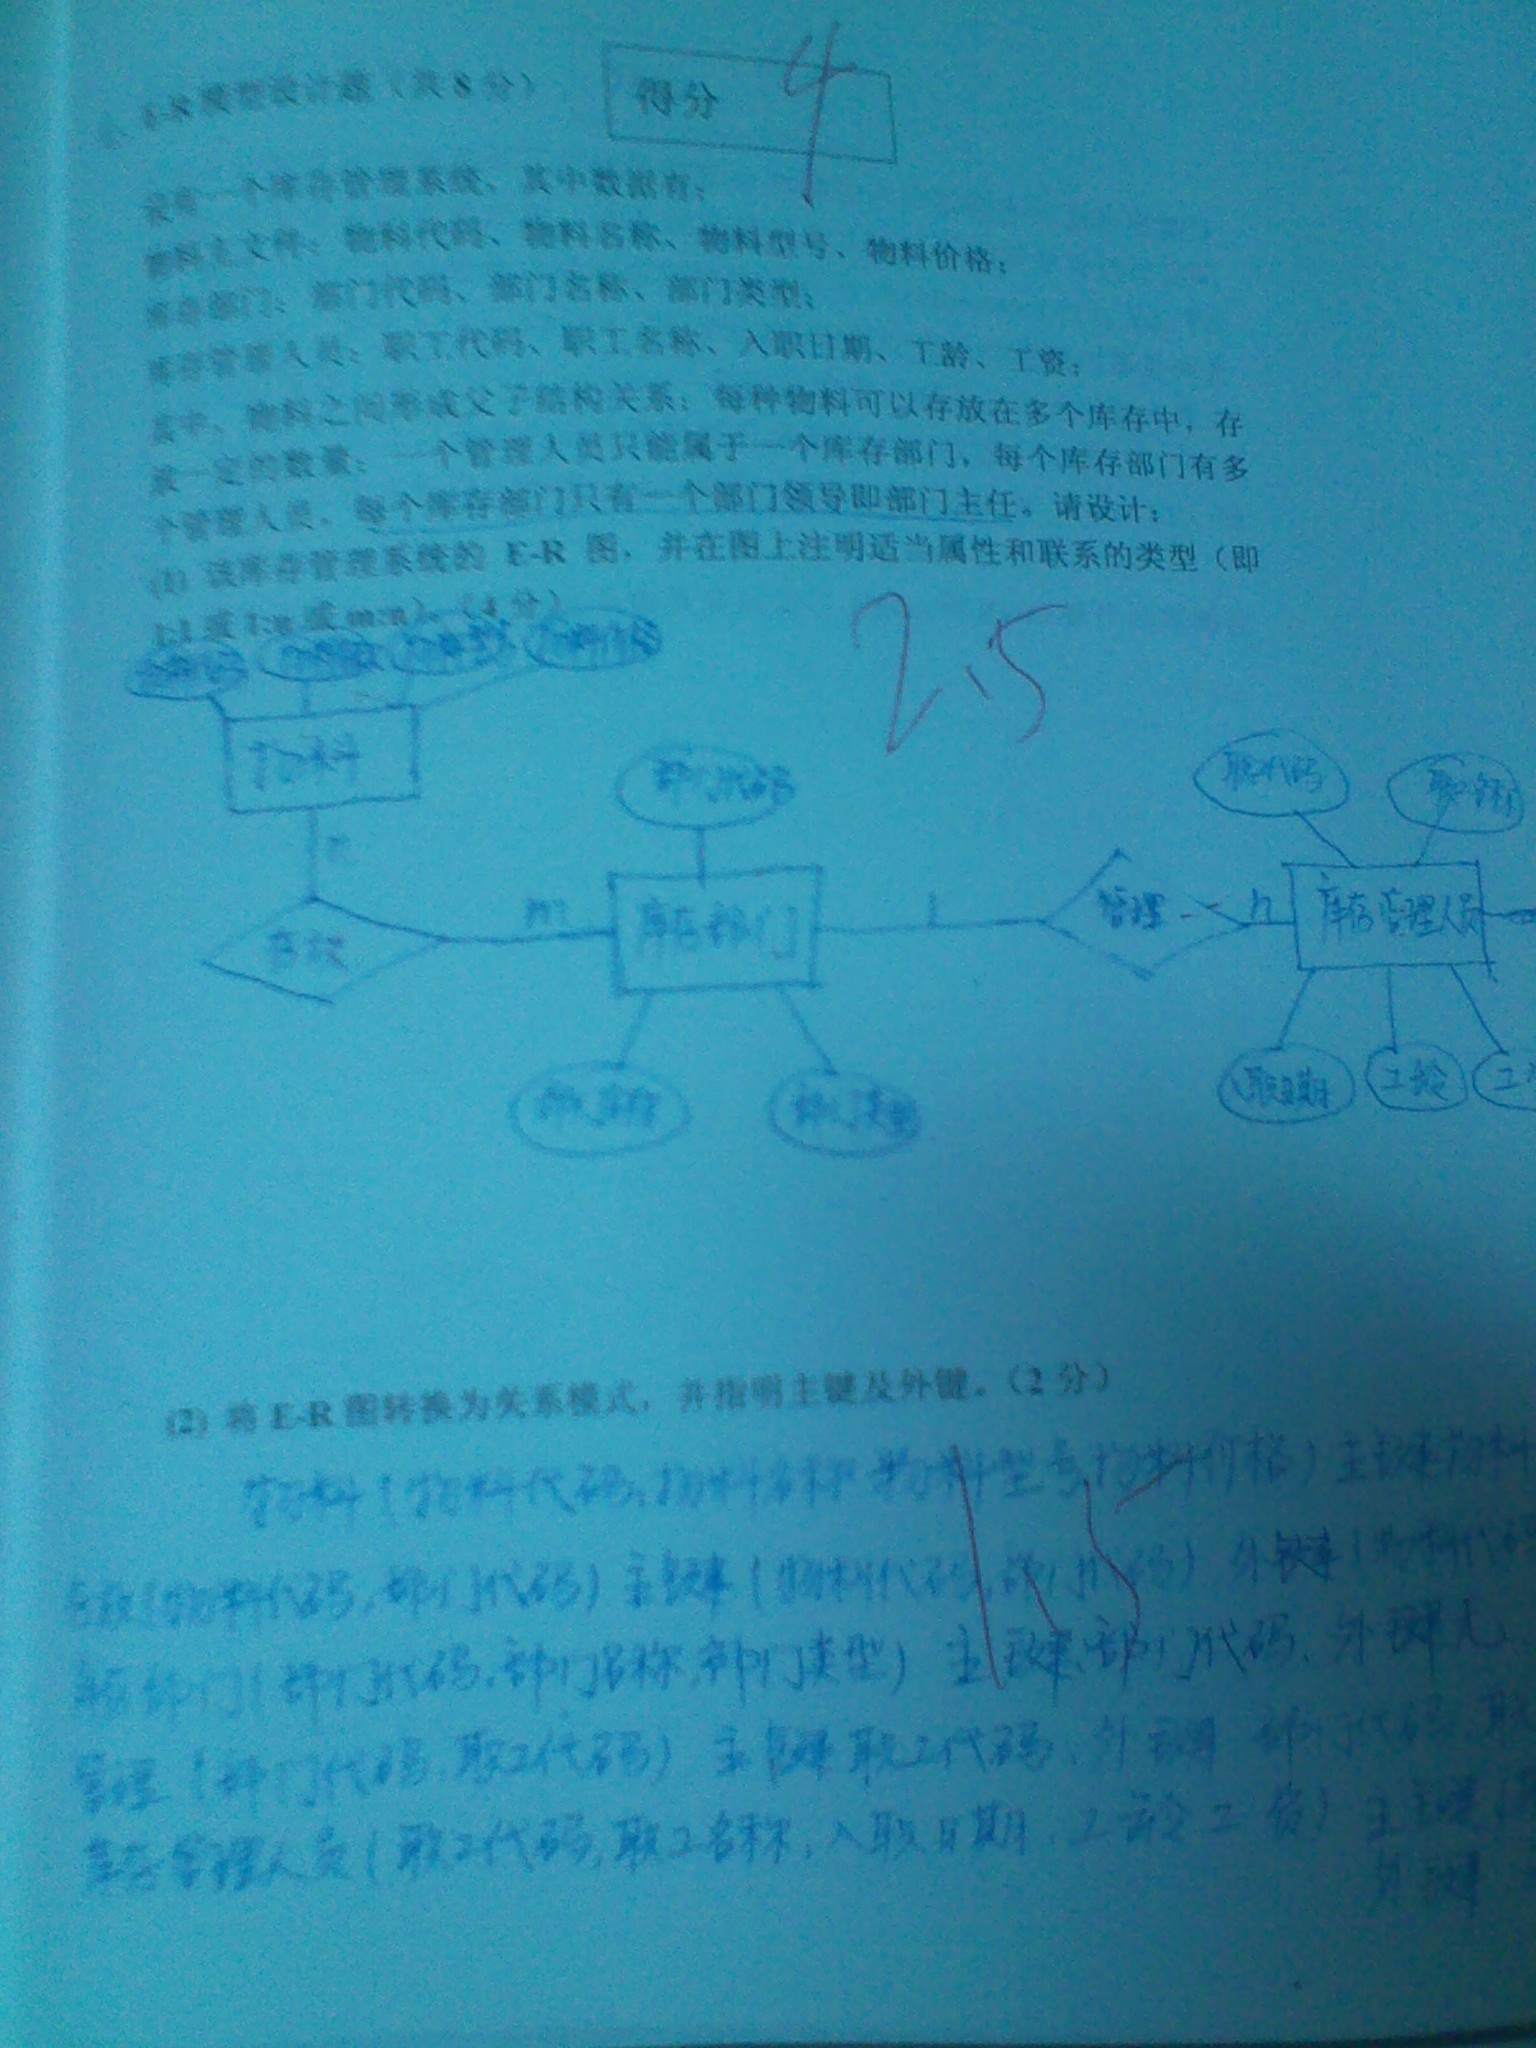 E-R模型设计题（共8分）
得分 4
设有一个库存管理系统，其中数据有：
物料主文件：物料代码、物料名称、物料型号、物料价格；
库存部门：部门代码、部门名称、部门类型；
库存管理人员：职工代码、职工名称、入职日期、工龄、工资；
其中，物料之间形成父子结构关系；每种物料可以存放在多个库存中，存
放一定的数量；一个管理人员只能属于一个库存部门，每个库存部门有多
个管理人员，每个库存部门只有一个部门领导即部门主任。请设计：
(1) 该库存管理系统的 E-R 图，并在图上注明适当属性和联系的类型（即
1:1 或 1:n 或 m:n）。（4 分）
2.5
物料
部门代码
职工代码
职工名称
n
存放
m
库存部门
1
管理
n
库存管理人员
部门名称
部门类型
入职日期
工龄
(2) 将 E-R 图转换为关系模式，并指明主键及外键。（2 分）
1.5
物料（物料代码，物料名称，物料型号，物料价格）主键物料
存放（物料代码，部门代码）主键（物料代码，部门代码）外键（物料代码
库存部门（部门代码，部门名称，部门类型）主键，部门代码，外键无
管理（部门代码，职工代码）主键职工代码，外键 部门代码，职
库存管理人员（职工代码，职工名称，入职日期，工龄 工资）主键
外键